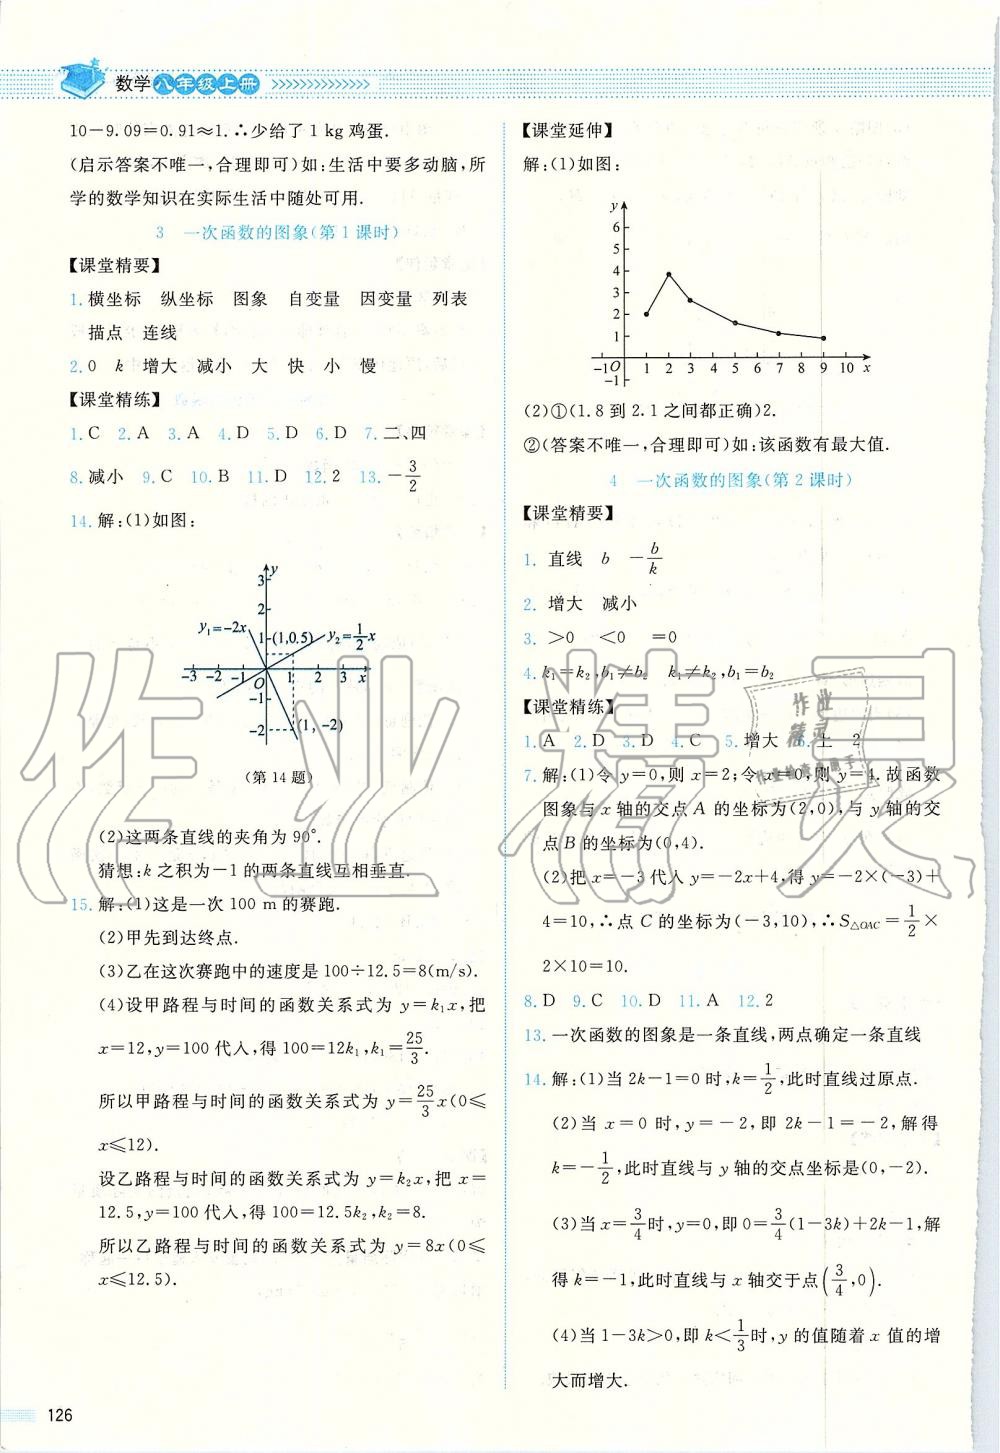 数学八年级上册
10－9.09＝0.91≈1.∴少给了 1 kg 鸡蛋.
(启示答案不唯一,合理即可)如:生活中要多动脑,所
学的数学知识在实际生活中随处可用.
3 一次函数的图象(第 1 课时)
【课堂精要】
1. 横坐标 纵坐标 图象 自变量 因变量 列表
描点 连线
2. 0 k 增大 减小 大 快 小 慢
【课堂精练】
1. C 2. A 3. A 4. D 5. D 6. D 7. 二、四
8. 减小 9. C 10. B 11. D 12. 2 13. －3/2
14. 解:(1)如图:
y
3
2
y₁=−2x 1 (1,0.5) y₂=1/2x
−3 −2 −1 O 1 2 3 x
−1
−2 (1,−2)
(第 14 题)
(2)这两条直线的夹角为 90°.
猜想:k 之积为－1 的两条直线互相垂直.
15. 解:(1)这是一次 100 m 的赛跑.
(2)甲先到达终点.
(3)乙在这次赛跑中的速度是 100÷12.5＝8(m/s).
(4)设甲路程与时间的函数关系式为 y＝k₁x,把
x＝12,y＝100 代入,得 100＝12k₁,k₁＝25/3.
所以甲路程与时间的函数关系式为 y＝25/3x(0≤
x≤12).
设乙路程与时间的函数关系式为 y＝k₂x,把 x＝
12.5,y＝100 代入,得 100＝12.5k₂,k₂＝8.
所以乙路程与时间的函数关系式为 y＝8x(0≤
x≤12.5).
126
【课堂延伸】
解:(1)如图:
y
6
5
4
3
2
1
−1 O 1 2 3 4 5 6 7 8 9 10 x
−1
(2)①(1.8 到 2.1 之间都正确)2.
②(答案不唯一,合理即可)如:该函数有最大值.
4 一次函数的图象(第 2 课时)
【课堂精要】
1. 直线 b －b/k
2. 增大 减小
3. ＞0 ＜0 ＝0
4. k₁＝k₂,b₁≠b₂ k₁≠k₂,b₁＝b₂
【课堂精练】
1. A 2. D 3. D 4. C 5. 增大 6. 上 2
7. 解:(1)令 y＝0,则 x＝2;令 x＝0,则 y＝4.故函数
图象与 x 轴的交点 A 的坐标为(2,0),与 y 轴的交
点 B 的坐标为(0,4).
(2)把 x＝－3 代入 y＝－2x＋4,得 y＝－2×(－3)＋
4＝10,∴点 C 的坐标为(－3,10),∴S△OAC＝1/2×
2×10＝10.
8. D 9. C 10. D 11. A 12. 2
13. 一次函数的图象是一条直线,两点确定一条直线
14. 解:(1)当 2k－1＝0 时,k＝1/2,此时直线过原点.
(2)当 x＝0 时,y＝－2,即 2k－1＝－2,解得
k＝－1/2,此时直线与 y 轴的交点坐标是(0,－2).
(3)当 x＝3/4时,y＝0,即 0＝3/4(1－3k)＋2k－1,解
得 k＝－1,此时直线与 x 轴交于点(3/4,0).
(4)当 1－3k＞0,即 k＜1/3时,y 的值随着 x 值的增
大而增大.
作业精灵
作业
精灵